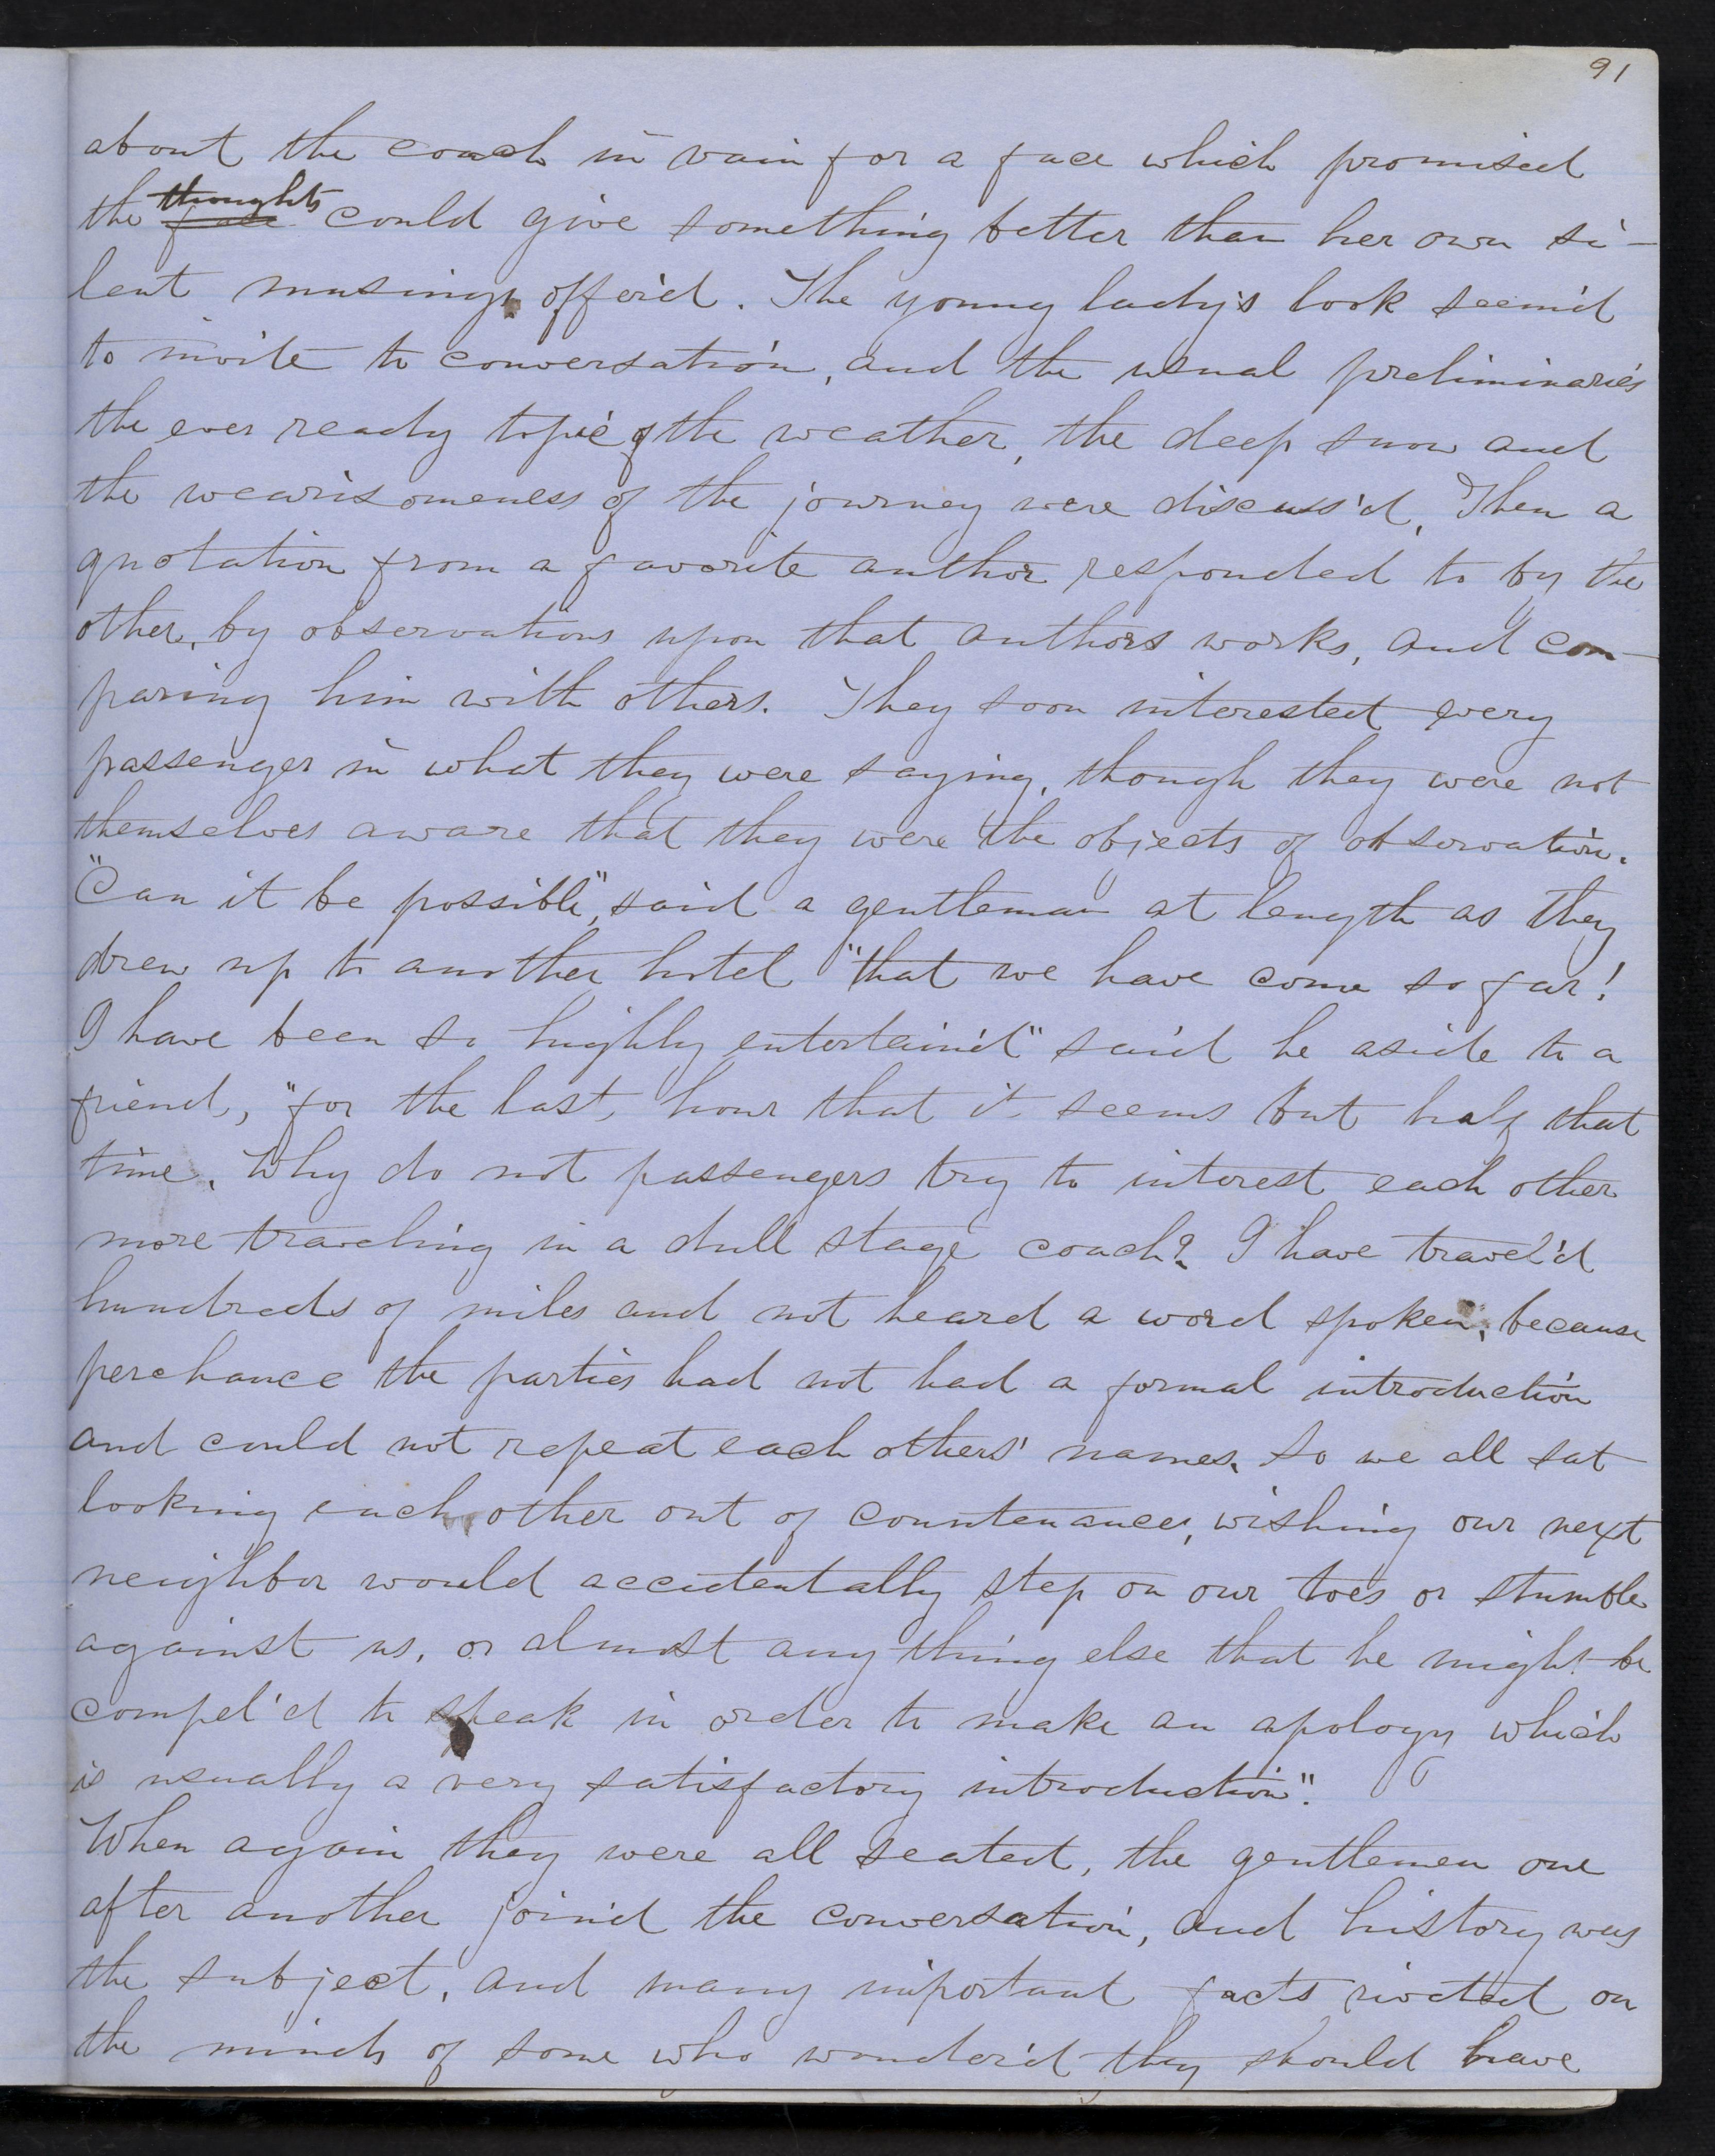 91
about the coach in vain for a face which promised
the ~~face~~ thoughts could give something better than her own si-
lent musings offer'd. The young lady's look seem'd
to invite to conversation, and the usual preliminaries
the ever ready topic of the weather, the deep snow and
the wearisomeness of the journey were discuss'd. Then a
quotation from a favorite author responded to by the
other, by observations upon that authors works, and com-
paring him with others. They soon interested every
passenger in what they were saying, though they were not
themselves aware that they were the objects of observation.
"Can it be possible", said a gentleman at length as they
drew up to another hotel "that we have come so far!
I have been so highly entertain'd" said he aside to a
friend, "for the last hour that it seems but half that
time. Why do not passengers try to interest each other
more traveling in a dull stage coach? I have travel'd
hundreds of miles and not heard a word spoken, because
perchance the parties had not had a formal introduction
and could not repeat each others' names. So we all sat
looking each other out of countenance, wishing our next
neighbor would accidentally step on our toes or stumble
against us, or almost any thing else that he might be
compel'd to speak in order to make an apology which
is usually a very satisfactory introduction".
When again they were all seated, the gentlemen one
after another join'd the conversation, and history was
the subject, and many important facts riveted on
the minds of some who wonder'd they should have